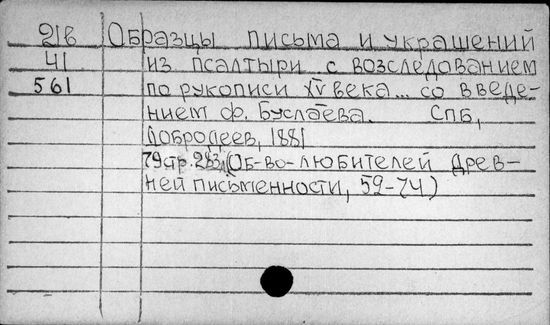 21в Образцы письма и украшений
41 из псалтыри с возследованием
561 по рукописи XV века... со введе-
нием Ф. Буслаева. СПб,
Добродеев, 1881
79стр. 283л (Об-во-любителей древ-
ней письменности, 59-74)